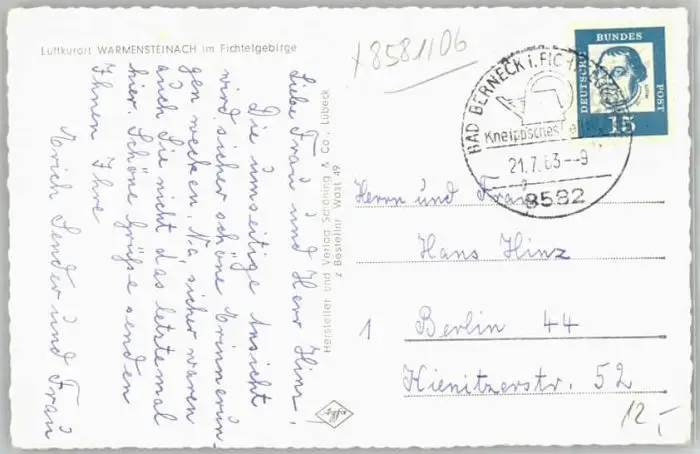 Luftkurort WARMENSTEINACH im Fichtelgebirge
x8581106
BUNDES
DEUTSCHE
POST
15
BAD BERNECK i. FICHTELGEBIRGE
Kneippsches
21.7.63--9
8582
Liebe Frau und Herr Hinz.
Die umseitige Ansicht
wird sicher schöne Erinnerun
gen wecken. Na, sicher waren
auch Sie nicht das letztemal
hier. Schöne Grüße senden
Ihnen Ihre
Erich Sender und Frau
Hersteller und Verlag Schöning & Co., Lübeck
z Bestellnr Wast 49
Herrn und Frau
Hans Hinz
1 Berlin 44
Kienitzerstr. 52
12,-